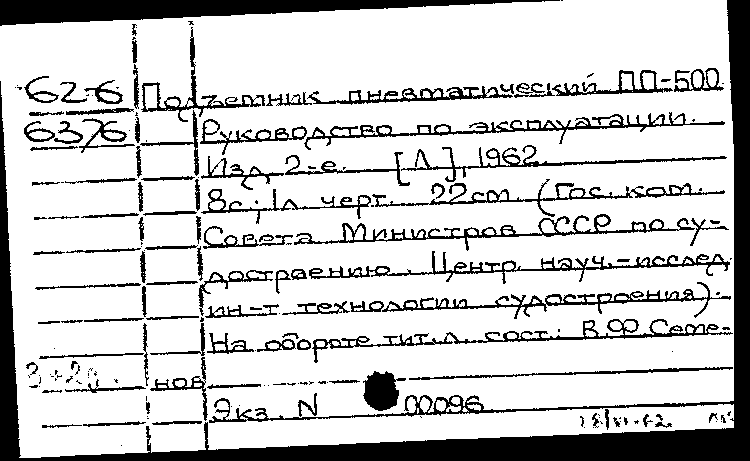 62-6 Подъемник пневматический ПП-500
6376 Руководство по эксплуатации.
Изд. 2-е. [Л], 1962.
8с.; 1л. черт. 22см. (Гос. ком.
Совета Министров СССР по су-
достроению. Центр. науч.-исслед.
ин-т технологии судостроения).
На обороте тит. л. сост.: В.Ф. Семе-
нов
Экз. N 00096